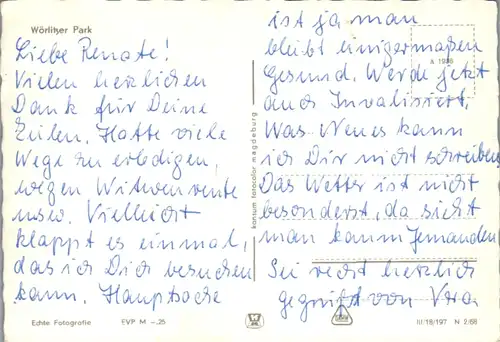 Wörlitzer Park
Liebe Renate!
Vielen herzlichen
Dank für Deine
Zeilen. Hatte viele
Wege zu erledigen,
wegen Witwenrente
usw. Vielleicht
klappt es einmal,
das ich Dich besuchen
kann. Hauptsache
Echte Fotografie EVP M -.25
konsum fotocolor magdeburg
ist ja man
bleibt einigermaßen
Gesund. Werde jetzt
auch Invalisiert.
Was Neues kann
ich Dir nicht schreiben
Das Wetter ist nicht
besonderst, da sieht
man kaum Jemanden
Sei recht herzlich
gegrüßt von Vera
A 1986
III/18/197 N 2/68